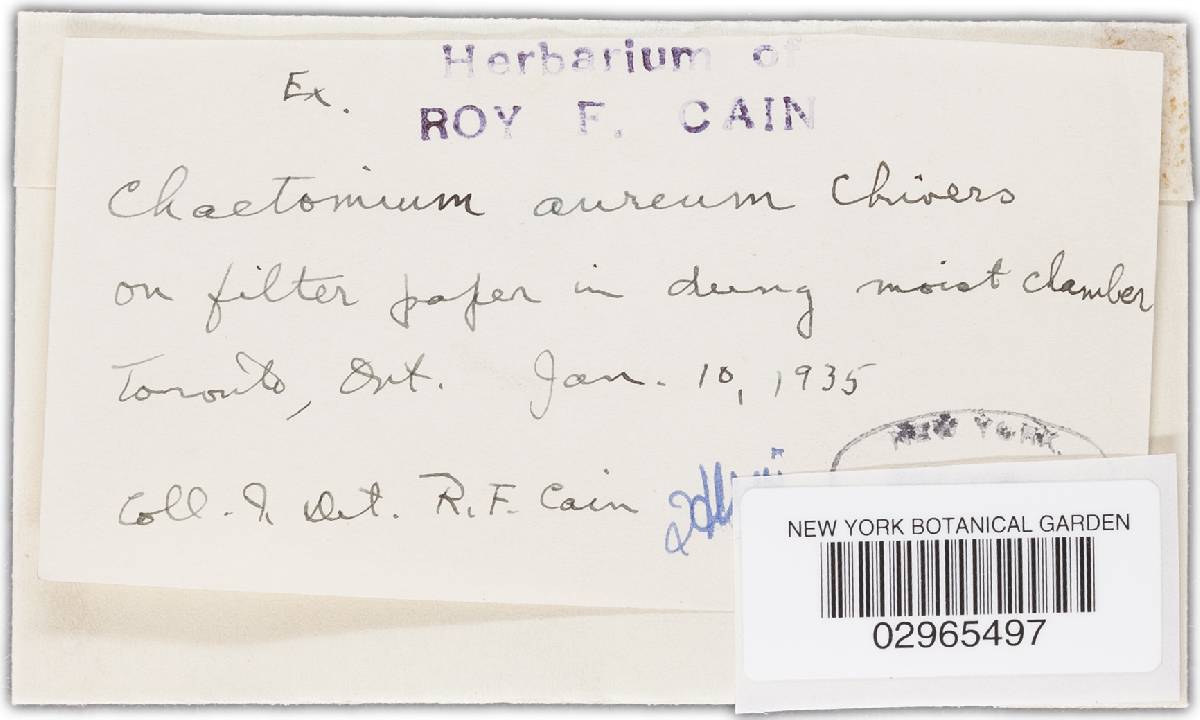 Ex. Herbarium of
ROY F. CAIN
Chaetomium aureum Chivers
on filter paper in dung moist chamber
Toronto, Ont. Jan. 10, 1935
Coll. & Det. R.F. Cain
NEW YORK
NEW YORK BOTANICAL GARDEN
02965497